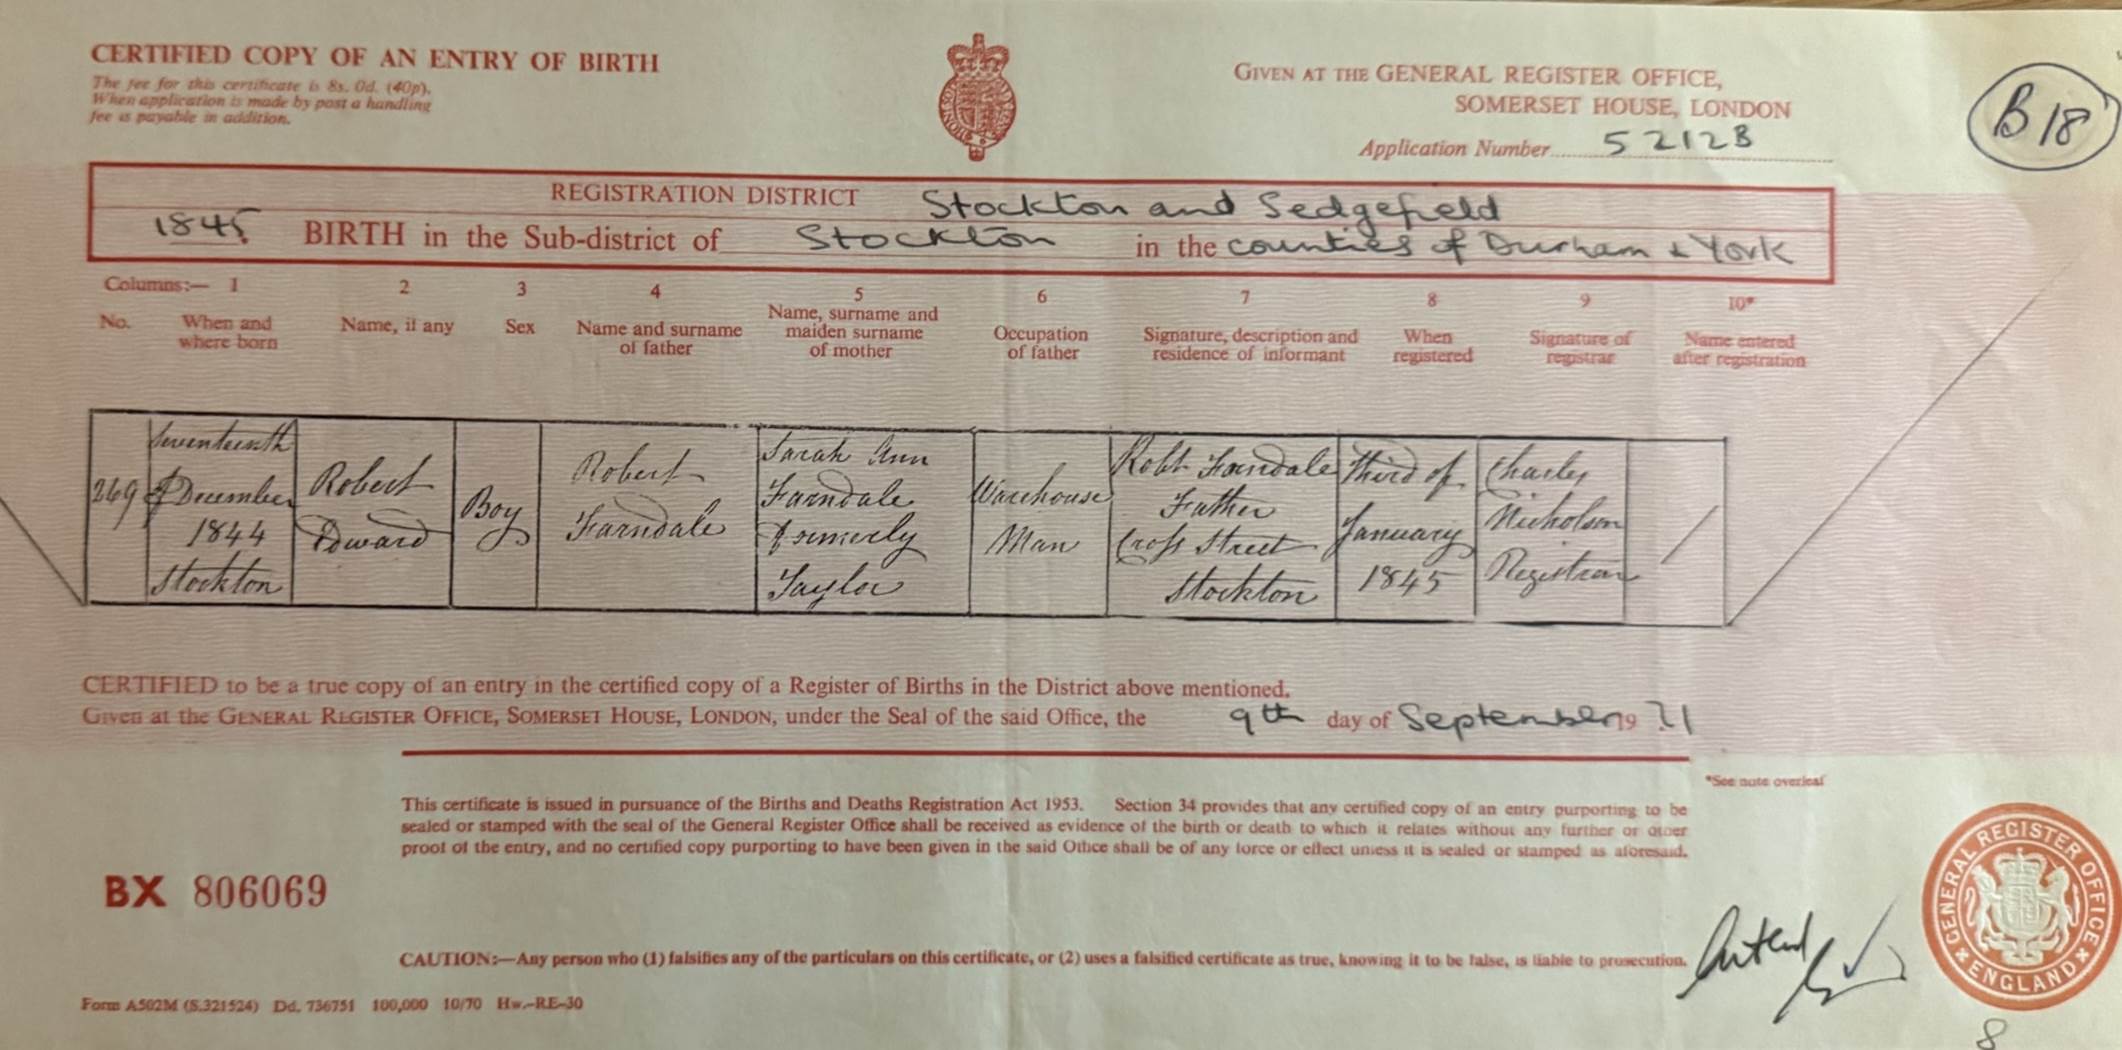 CERTIFIED COPY OF AN ENTRY OF BIRTH
The fee for this certificate is 8s. 0d. (40p).
When application is made by post a handling
fee is payable in addition.
GIVEN AT THE GENERAL REGISTER OFFICE,
SOMERSET HOUSE, LONDON
Application Number 5212B
B18
REGISTRATION DISTRICT Stockton and Sedgefield
1845 BIRTH in the Sub-district of Stockton in the counties of Durham & York
Columns:— 1 2 3 4 5 6 7 8 9 10*
No.
When and
where born
Name, if any
Sex
Name and surname
of father
Name, surname and
maiden surname
of mother
Occupation
of father
Signature, description and
residence of informant
When
registered
Signature of
registrar
Name entered
after registration
269
Seventeenth
of December
1844
Stockton
Robert
Edward
Boy
Robert
Farndale
Sarah Ann
Farndale
formerly
Taylor
Warehouse
Man
Robt Farndale
Father
Cross Street
Stockton
Third of
January
1845
Charles
Nicholson
Registrar
CERTIFIED to be a true copy of an entry in the certified copy of a Register of Births in the District above mentioned.
Given at the GENERAL REGISTER OFFICE, SOMERSET HOUSE, LONDON, under the Seal of the said Office, the 9th day of September 1971
*See note overleaf
This certificate is issued in pursuance of the Births and Deaths Registration Act 1953. Section 34 provides that any certified copy of an entry purporting to be
sealed or stamped with the seal of the General Register Office shall be received as evidence of the birth or death to which it relates without any further or other
proof of the entry, and no certified copy purporting to have been given in the said Office shall be of any force or effect unless it is sealed or stamped as aforesaid.
BX 806069
CAUTION:—Any person who (1) falsifies any of the particulars on this certificate, or (2) uses a falsified certificate as true, knowing it to be false, is liable to prosecution.
GENERAL REGISTER OFFICE
ENGLAND
Form A502M (S.321524) Dd. 736751 100,000 10/70 Hw.—RE-30
8